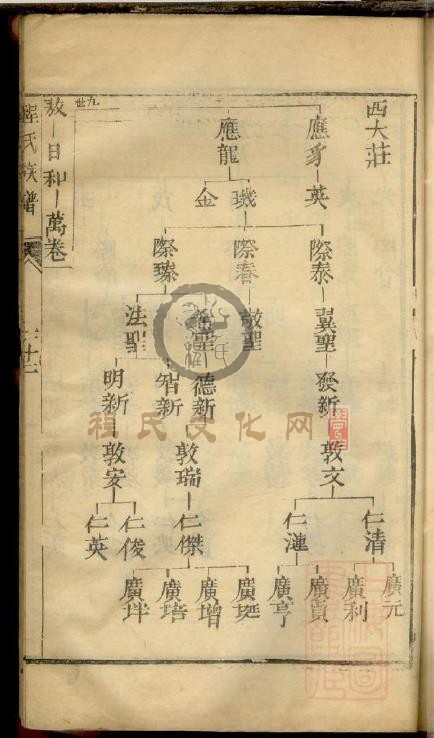 西大莊
應豸
英
應龍
璣
金
際泰
際春
際臻
翼聖
敬聖
法聖
發新
德新
智新
明新
敦文
敦瑞
敦安
仁清
仁漣
仁傑
仁俊
仁英
廣元
廣利
廣貢
廣亨
廣埏
廣增
廣培
廣垟
九世
敖 日和 萬卷
程氏族譜
程氏文化网